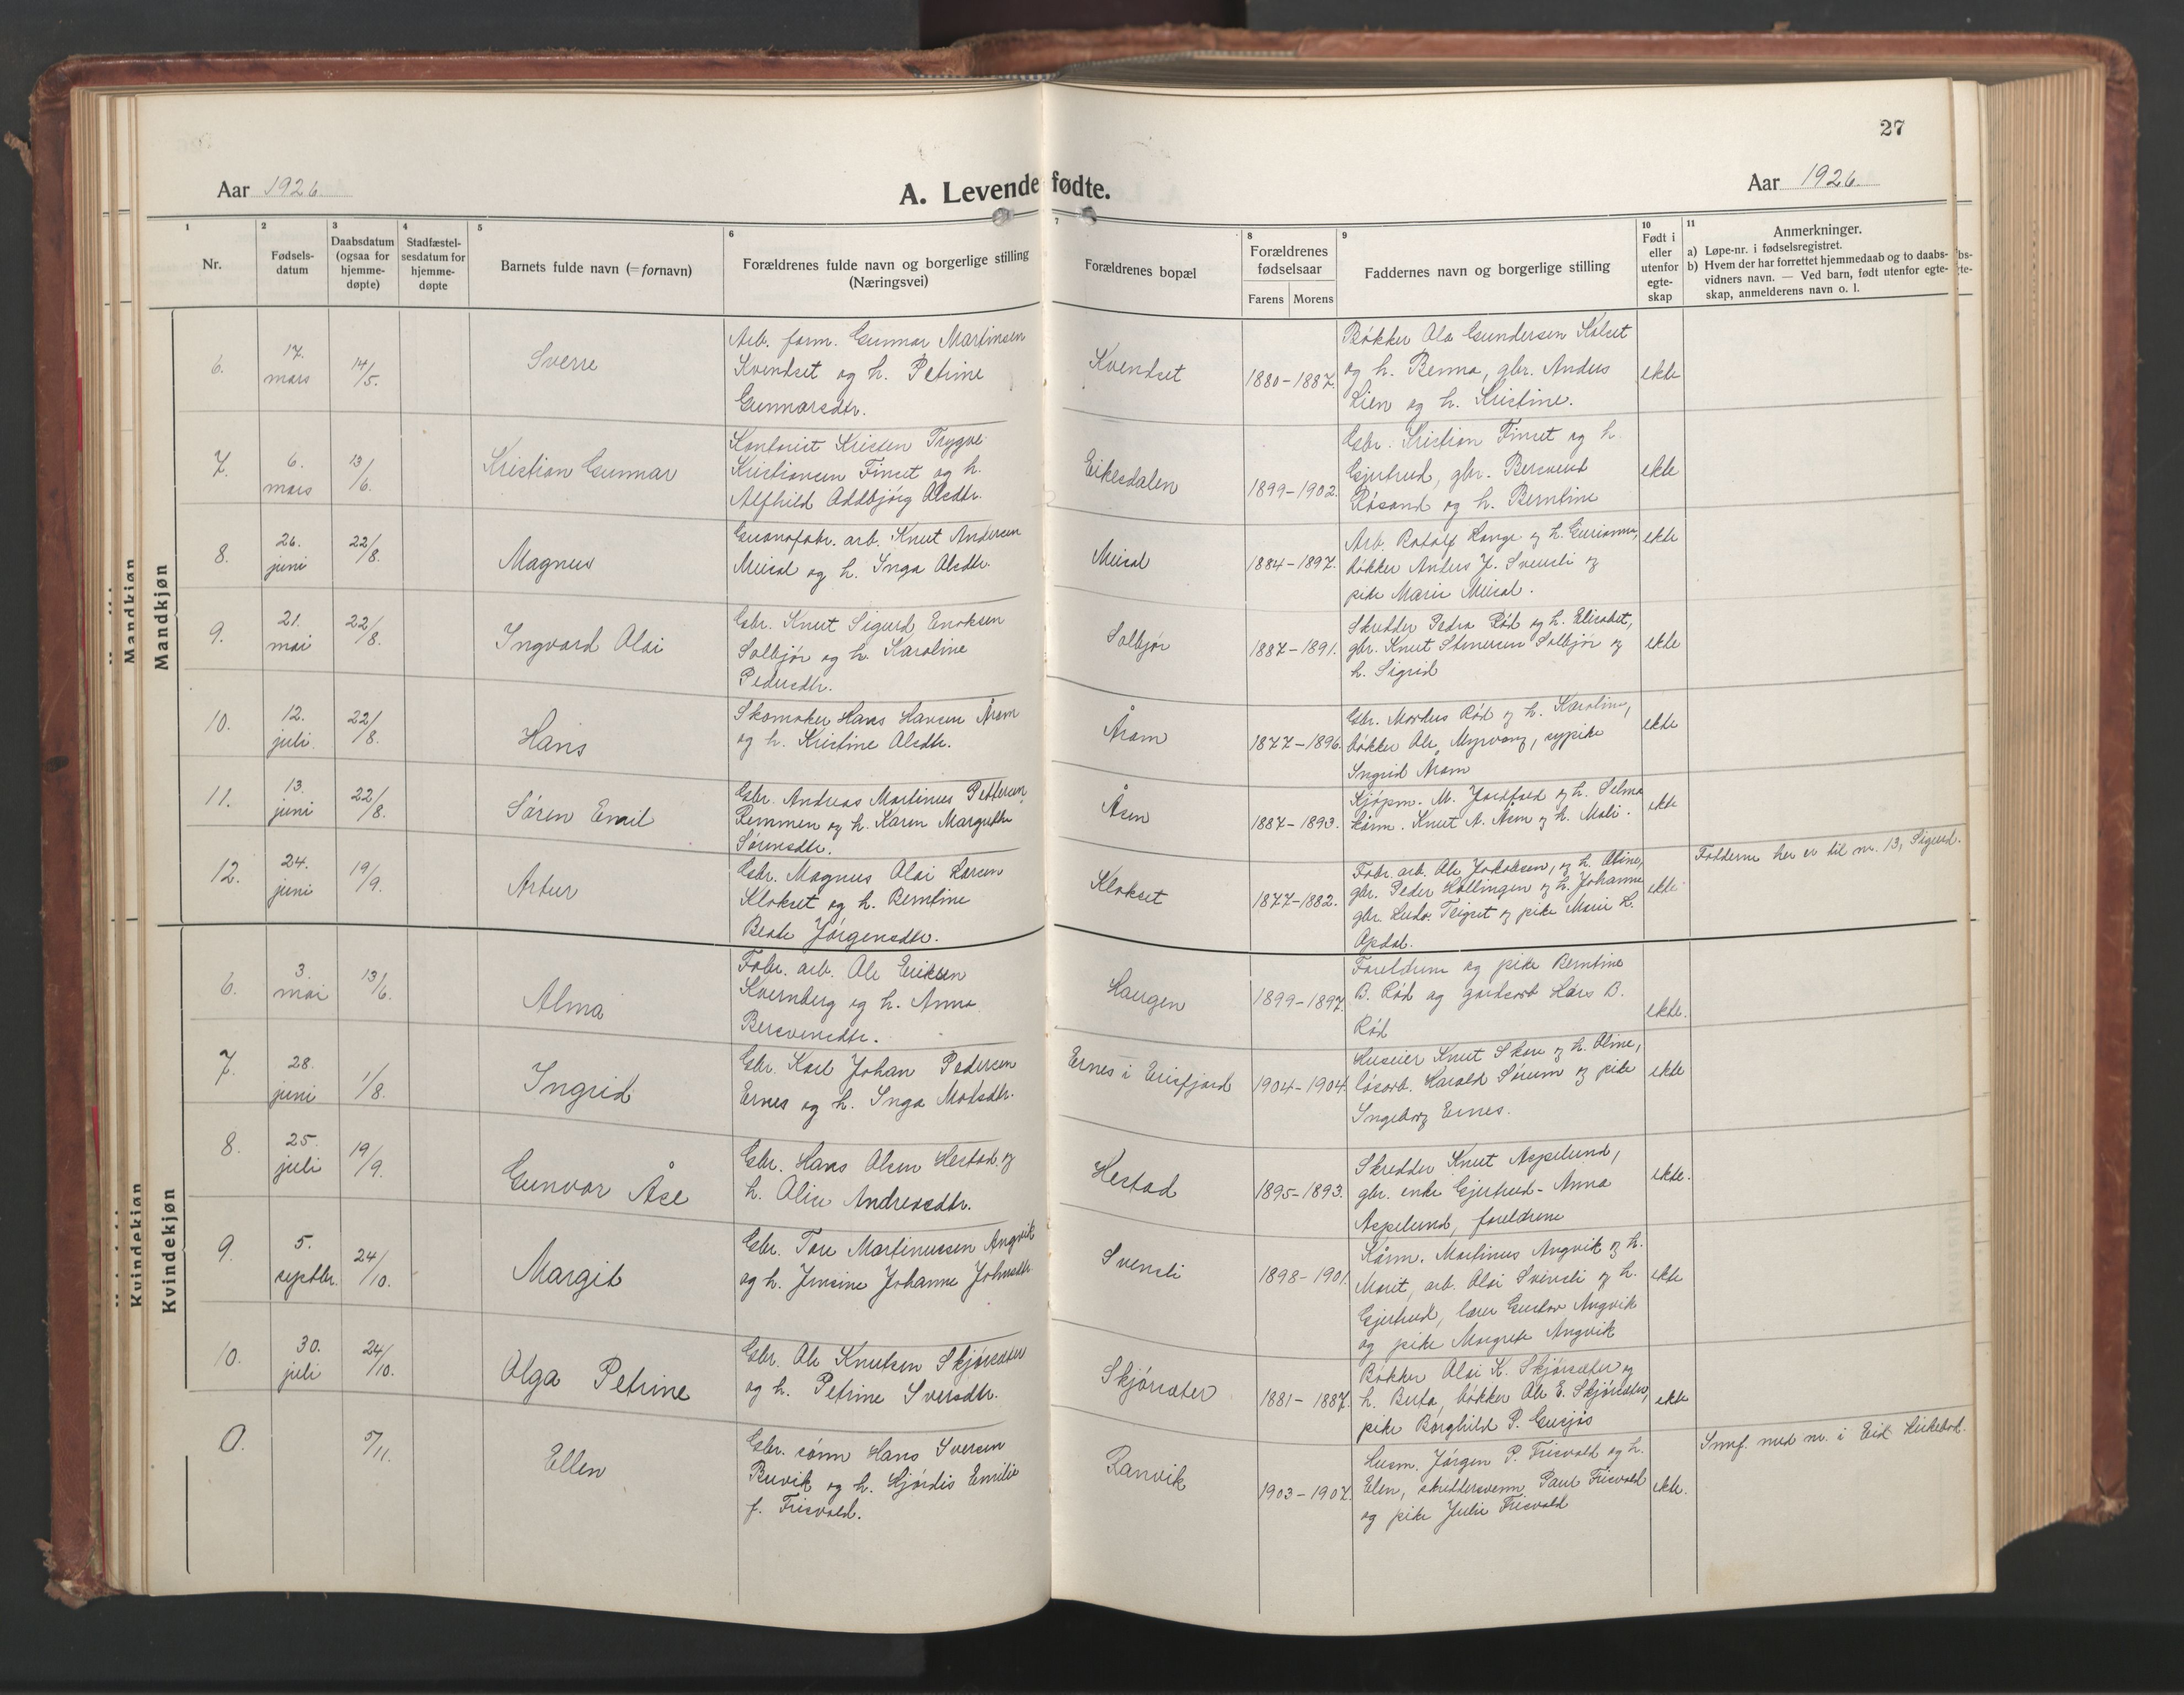 27
Aar 1926.
A. Levende fødte.
Aar 1926.
1 2 3 4 5 6 7 8 9 10 11
Nr.
Fødsels-
datum
Daabsdatum
(ogsaa for
hjemme-
døpte)
Stadfæstel-
sesdatum for
hjemme-
døpte
Barnets fulde navn (= fornavn)
Forældrenes fulde navn og borgerlige stilling
(Næringsvei)
Forældrenes bopæl
Forældrenes
fødselsaar
Farens Morens
Faddernes navn og borgerlige stilling
Født i
eller
utenfor
egte-
skap
Anmerkninger.
a) Løpe-nr. i fødselsregistret.
b) Hvem der har forrettet hjemmedaab og to daabs-
vidners navn. — Ved barn, født utenfor egte-
skap, anmelderens navn o. l.
Mandkjøn
Mandkjøn
6.
17.
mars
14/5.
Sverre
Arb. form. Gunnar Martinsen
Kvendset og h. Petrine
Gunnarsdtr.
Kvendset
1880-1887.
Bøkker Ola Gundersen Kolset
og h. Benna, gbr. Anders
Lien og h. Kristine.
ekte
7.
6.
mars
13/6.
Kristian Gunnar
Kontorist Kristen Trygve
Kristiansen Finset og h.
Alfhild Oddbjørg Olsdtr.
Eikesdalen
1899-1902.
Gbr. Kristian Finset og h.
Gjertrud, gbr. Bersvend
Røsand og h. Berntine
ekte
8.
26.
juni
22/8.
Magnus
Guanofabr. arb. Knut Andersen
Meisal og h. Inga Olsdtr.
Meisal
1884-1897.
Arb. Rodolf Range og h. Gurianna,
bøkker Anders J. Svensli og
pike Marie Meisal.
ekte
9.
21.
mai
22/8.
Ingvard Olai
Gbr. Knut Sigurd Enoksen
Solbjør og h. Karoline
Pedersdtr.
Solbjør
1887-1891.
Skredder Pedro Rød og h. Elisabet,
gbr. Knut Stenersen Solbjør og
h. Sigrid
ekte
10.
12.
juli.
22/8.
Hans
Skomaker Hans Hansen Åram
og h. Kristine Olsdtr.
Åram
1877-1896.
Gbr. Mordus Rød og h. Karoline,
bøkker Ole Myrvang, sypike
Ingrid Åram
ekte
11.
13.
juni
22/8.
Søren Emil
Gbr. Andreas Martinus Pettersen
Remmen og h. Karen Margrethe
Sørensdtr.
Åsen
1887-1893.
Kjøpm. M. Jordfald og h. Selma
kårm. Knut A. Åsen og h. Mali.
ekte
12.
24.
juni
19/9.
Artur
Gbr. Magnus Olai Larsen
Klokset og h. Berntine
Beate Jørgensdtr.
Klokset
1877-1882.
Fabr. arb. Ole Jakobsen, og h. Oline,
gbr. Peder Hallingen og h. Johanne
gbr. Ludv. Teigset og pike Marie K.
Opdal.
ekte
Fadderne her er til nr. 13, Sigurd.
Kvindekjøn
Kvindekjøn
6.
3.
mai
13/6.
Alma
Fabr. arb. Ole Eriksen
Kvernberg og h. Anna
Bersvensdtr.
Haugen
1899-1897.
Foreldrene og pike Berntine
B. Rød og gardsarb Hars B.
Rød
ekte.
7.
28.
juni
1/8.
Ingrid
Gbr. Karl Johan Pedersen
Ernes og h. Inga Matsdtr.
Ernes i Erisfjord
1904-1904.
Huseier Knut Skare og h. Oline,
løsarb. Harald Sørum og pike
Ingeborg Ernes.
ekte
8.
25.
juli
19/9.
Gunvor Åse
Gbr. Hans Olsen Hestad og
h. Olise Andreasdtr.
Hestad
1895-1893.
Skredder Knut Aspelund,
gbr. enke Gjertrud-Anna
Aspelund, foreldrene
ekte.
9.
5.
septbr.
24/10.
Margit
Gbr. Tore Martinussen Angvik
og h. Jensine Johanne Johnsdtr.
Svensli
1898-1901.
Kårm. Martinus Angvik og h.
Marit, arb. Olai Svensli og h.
Gjertrud, lærer Gustav Angvik
og pike Margrete Angvik
ekte
10.
30.
juli
24/10.
Olga Petrine
Gbr. Ole Knutsen Skjørsæter
og h. Petrine Iversdtr.
Skjørsæter
1881-1887.
Bøkker Olai K. Skjørsæter og
h. Berta, bøkker Ole E. Skjørsæter,
pike Borghild P. Gusjås
ekte
0.
5/11.
Ellen
Gbr. sønn Hans Iversen
Buvik og h. Hjørdis Emilie
f. Frisvold.
Ranvik
1903-1907.
Husm. Jørgen P. Frisvold og h.
Elen, skreddersvenn Paul Frisvold
og pike Julie Frisvold
ekte.
Innf. med nr. i Eid kirkebok.